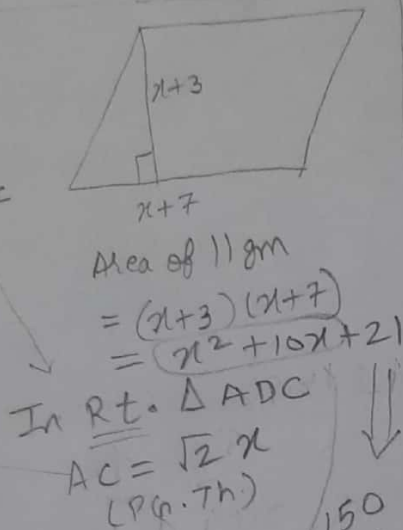 x+3
x+7
Area of ||gm
= (x+3) (x+7)
= x² + 10x + 21
In Rt. Δ ADC
AC = √2 x
(PG. Th.)
150